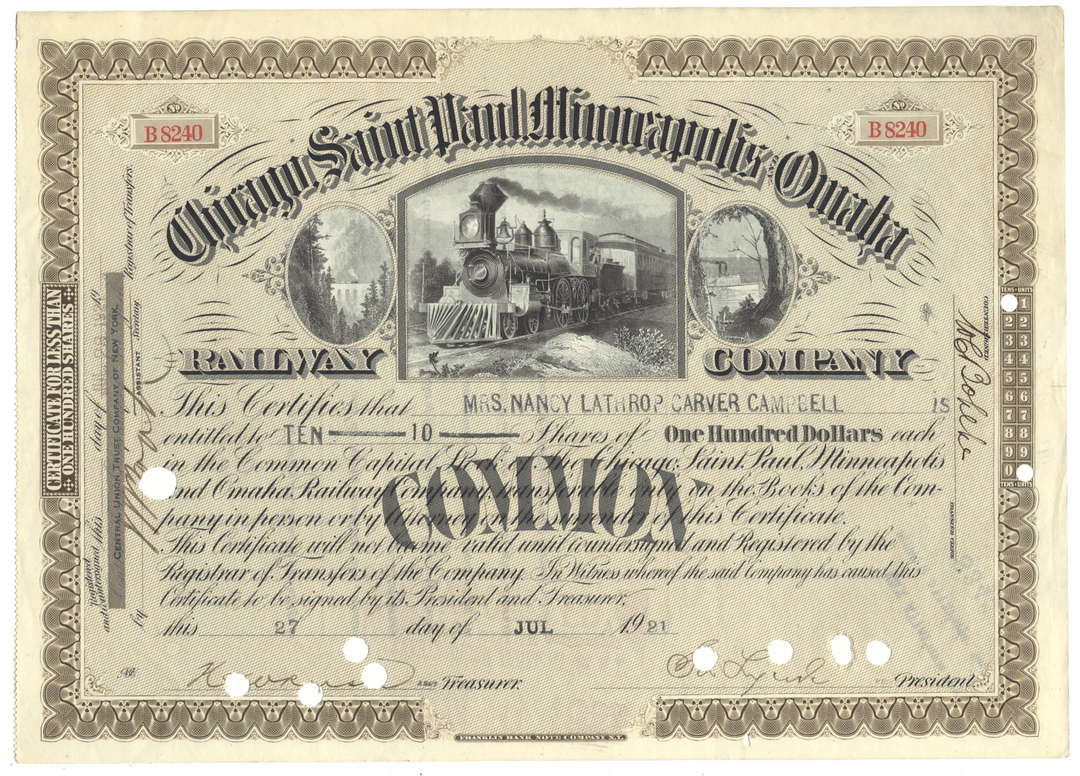 No B 8240
No B 8240
Chicago, Saint Paul, Minneapolis & Omaha
RAILWAY COMPANY
This Certifies that MRS. NANCY LATHROP CARVER CAMPBELL IS
entitled to TEN 10 Shares of One Hundred Dollars each
in the Common Capital Stock of the Chicago, Saint Paul, Minneapolis
and Omaha Railway Company, transferable only on the Books of the Com-
pany in person or by Attorney on the surrender of this Certificate.
This Certificate will not become valid until countersigned and Registered by the
Registrar of Transfers of the Company. In Witness whereof the said Company has caused this
Certificate to be signed by its President and Treasurer,
this 27 day of JUL 1921
COMMON
ASST Treasurer.
President.
FRANKLIN BANK NOTE COMPANY N.Y.
CERTIFICATE FOR LESS THAN
ONE HUNDRED SHARES
Registered
and countersigned this day of
CENTRAL UNION TRUST COMPANY OF NEW YORK,
Registrar of Transfers
by ASSISTANT Secretary
COUNTERSIGNED
TRANSFER
TENS UNITS
1
2 2
3 3
4 4
5 5
6 6
7 7
8 8
9 9
0
TENS UNITS